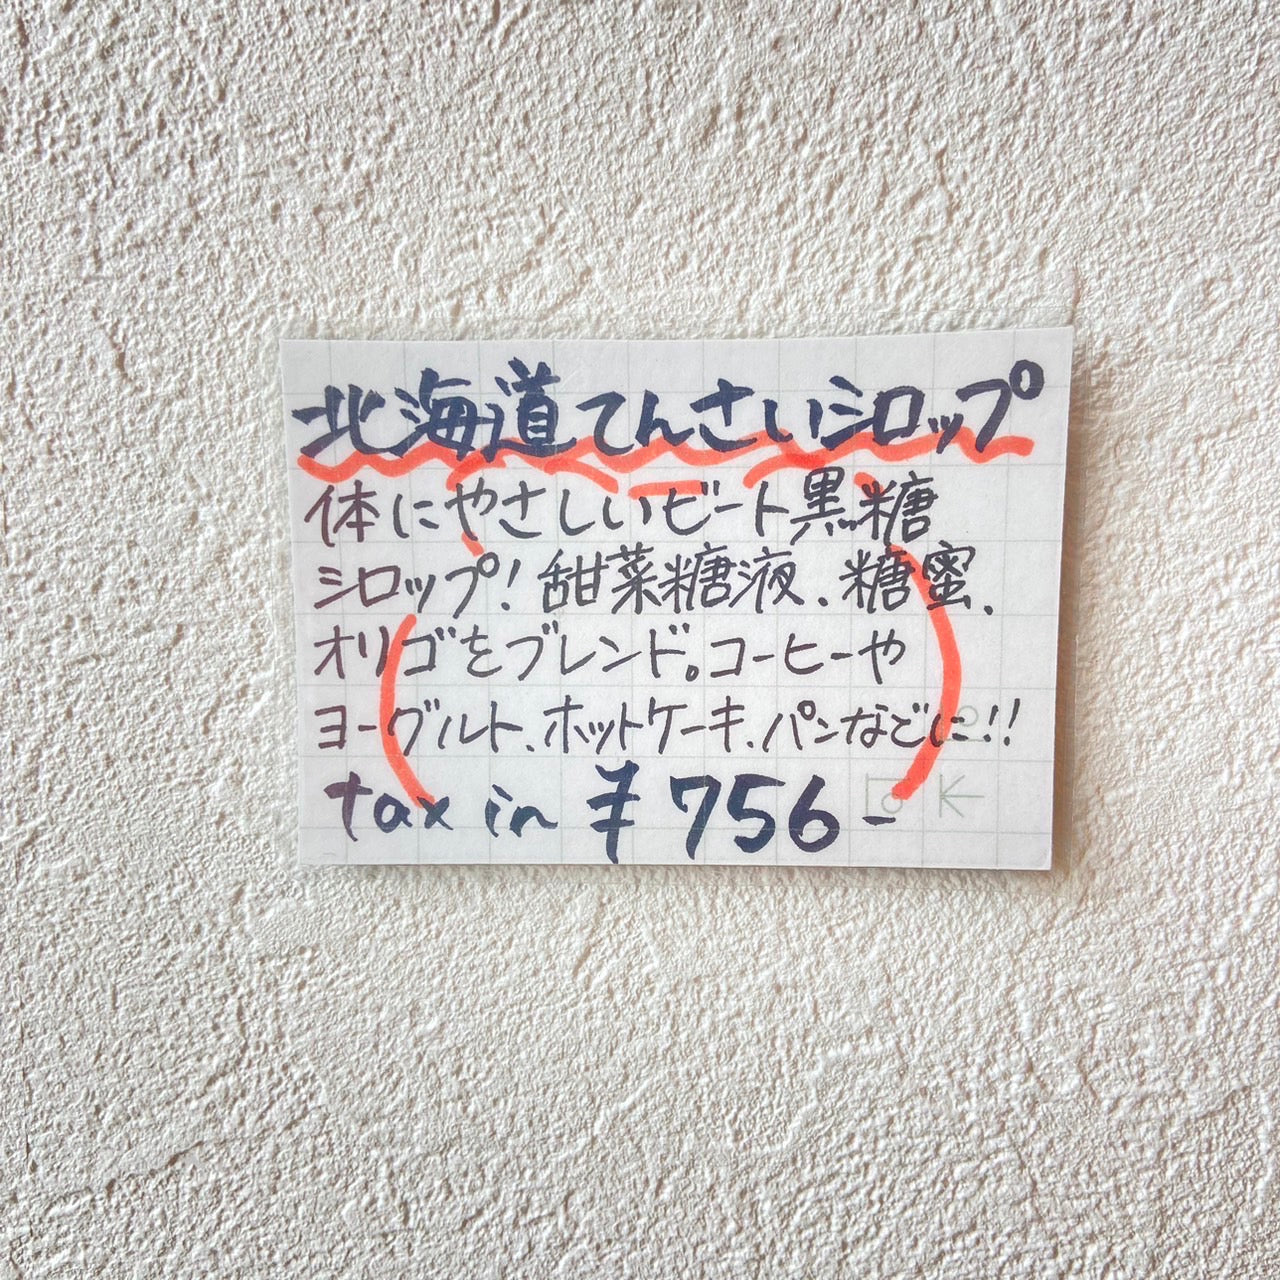 北海道てんさいシロップ
体にやさしいビート黒糖
シロップ！甜菜糖液、糖蜜、
オリゴをブレンド。コーヒーや
ヨーグルト、ホットケーキ、パンなどに!!
tax in ¥756-